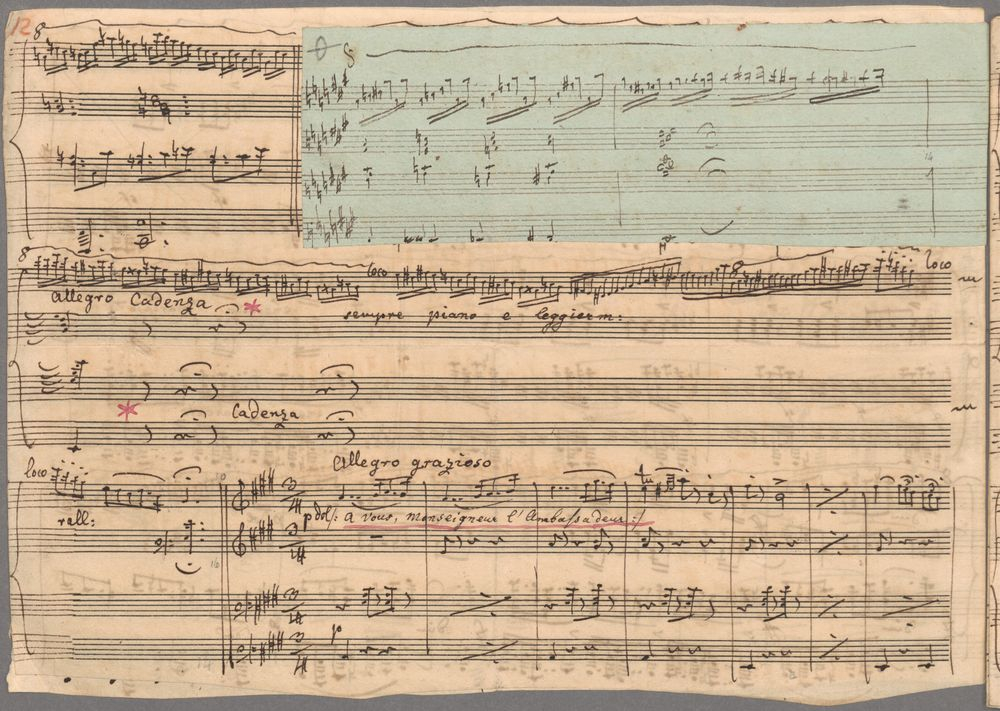 12 8
0 8
8 loco loco
Allegro Cadenza *
sempre piano e leggierm:
* Cadenza
loco Allegro grazioso
tr
rall: p dol /: a vous, monseigneur l'Ambassadeur :/
3/4
3/4
3/4
p
3/4